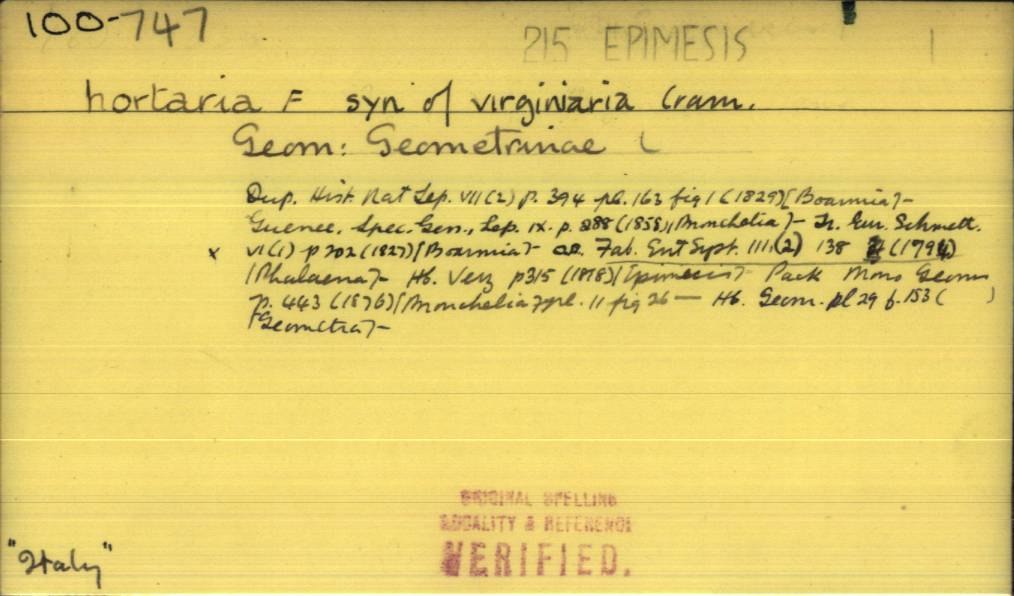 100-747
215 EPIMESIS 1
hortaria F syn of virginiaria Cram.
Geom: Geometrinae
Dup. Hist. Nat Lep. VII(2) p. 394 pl. 163 fig 1 (1829) [Boarmia] -
Guenee. Spec. Gen., Lep. IX. p. 288 (1858), [Bronchelia] - Tr. Eur. Schmett.
x VI(1) p 202 (1827) [Boarmia] - Fab. Ent Syst. III(2) 138 (1794)
[Phalaena] - Hb. Verz p315 (1818) [Epimecis] Pack Mono Geom
p. 443 (1876) [Bronchelia] pl. 11 fig 26 — Hb. Geom. pl 29 f. 153 ( )
[Geometra] -
ORIGINAL SPELLING
LOCALITY & REFERENCE
VERIFIED.
"Italy"